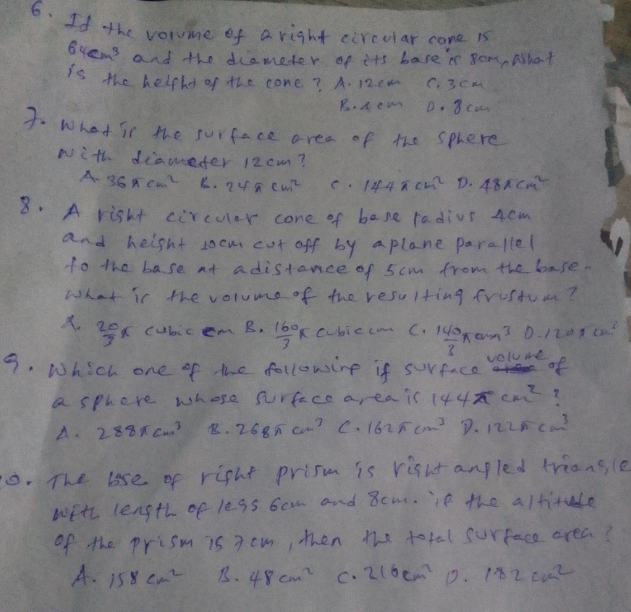 6. If the volume of a right circular cone is
64cm³ and the diameter of its base is 8cm, what
is the height of the cone? A. 12cm C. 3cm
B. 4cm D. 8cm
7. What is the surface area of the sphere
with diameter 12cm?
A. 36π cm² B. 24π cm² C. 144π cm² D. 48π cm²
8. A right circular cone of base radius 4cm
and height 10cm cut off by a plane parallel
to the base at a distance of 5cm from the base.
What is the volume of the resulting frustum?
A. 20/3 π cubic cm B. 160/3 π cubic cm C. 140/3 π cm³ D. 120π cm³
9. Which one of the following if surface volume of
a sphere whose surface area is 144π cm²?
A. 288π cm³ B. 268π cm³ C. 162π cm³ D. 122π cm³
10. The base of right prism is right angled triangle
with length of legs 6cm and 8cm. if the altitude
of the prism is 7cm, then the total surface area?
A. 158 cm² B. 48 cm² C. 216cm² D. 182 cm²